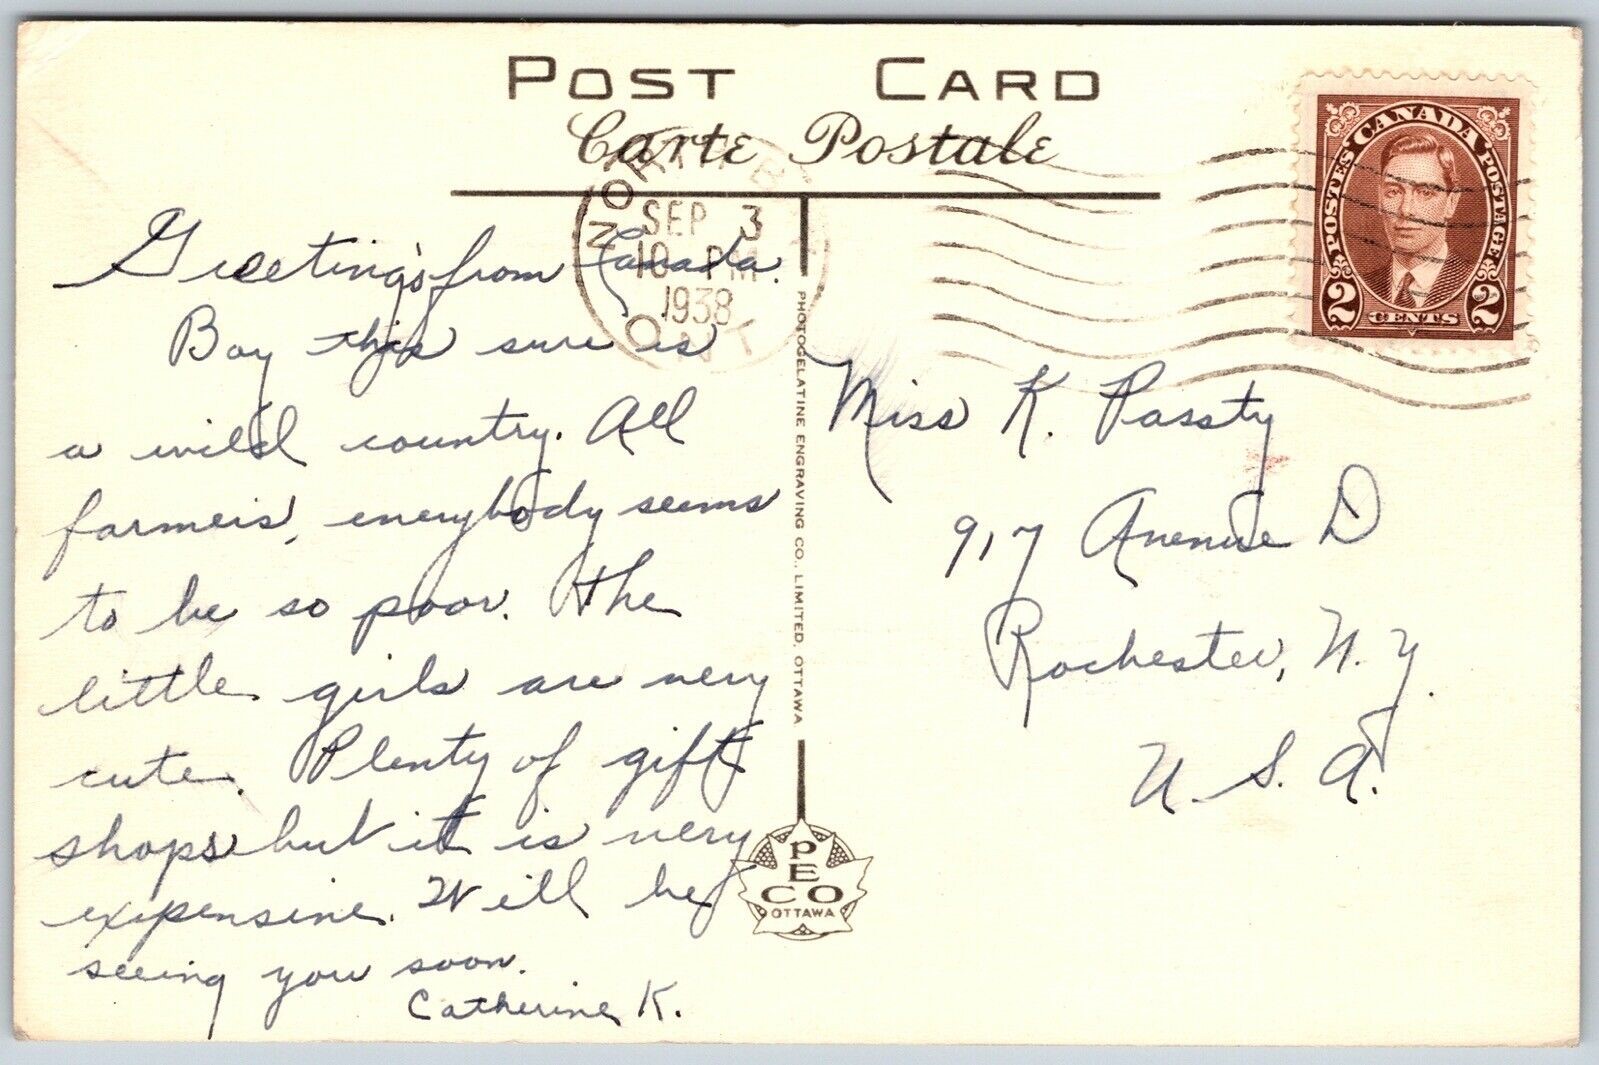 POST CARD
Carte Postale
NORTH BAY
SEP 3
10 PM
1938
ONT
CANADA
POSTES POSTAGE
2 CENTS 2
Greeting's from Canada.
Boy this sure is
a wild country. All
farmers, everybody seems
to be so poor. The
little girls are very
cute. Plenty of gift
shops but it is very
expensive. Will be
seeing you soon.
Catherine K.
PHOTOGELATINE ENGRAVING CO., LIMITED, OTTAWA
PECO
OTTAWA
Miss K. Passty
917 Avenue D
Rochester, N.Y.
U.S.A.